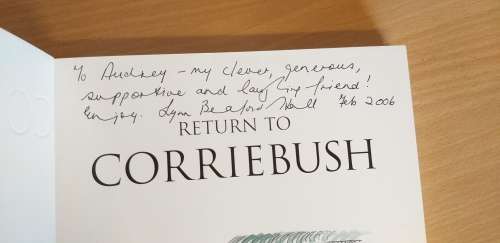 To Audrey - my clever, generous,
supportive and laughing friend!
Enjoy. Lynn Bedford Hall Feb 2006
RETURN TO
CORRIEBUSH